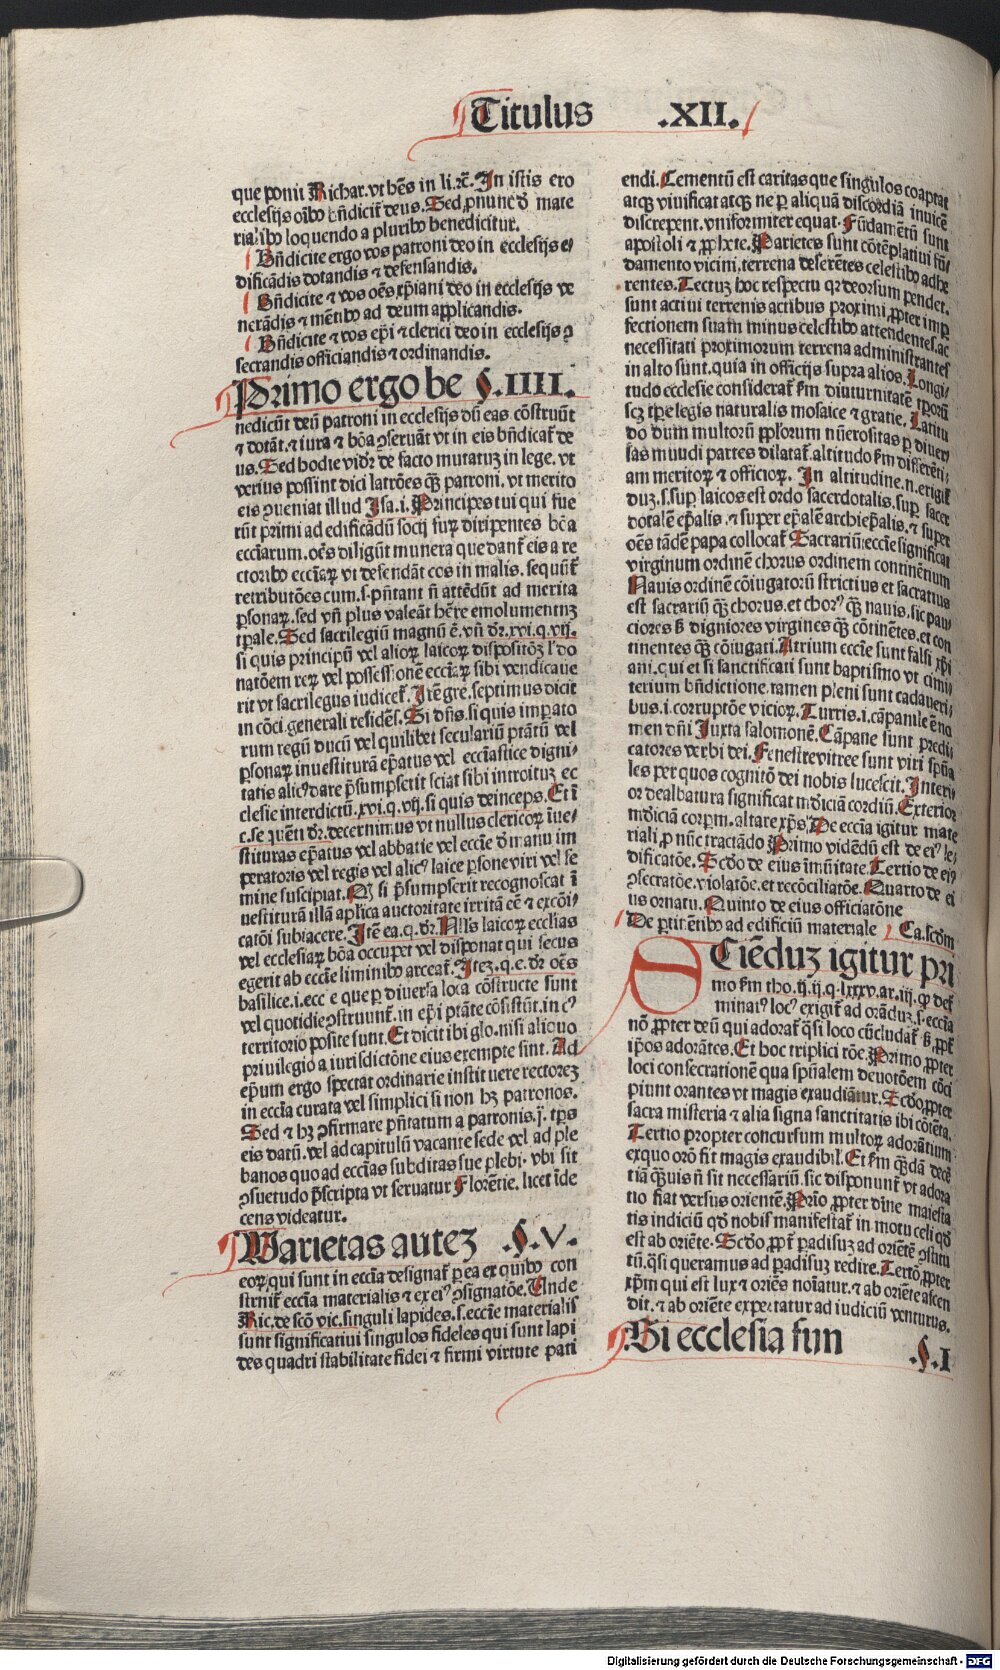 Titulus .XII.
que ponit Richar. vt hēs in li. ⁊c̄. In istis ero
ecclesijs oībꝰ bn̄dicit̄ deus. Sed ꝓnunc ḋ mate
rialibꝰ loquendo a pluribꝰ benedicitur.
Bn̄dicite ergo vos patroni deo in ecclesijs e⸗
dificādis dotandis ⁊ defensandis.
Bn̄dicite ⁊ vos oēs xp̄iani deo in ecclesijs ve
nerādis ⁊ mētibꝰ ad deum applicandis.
Bn̄dicite ⁊ vos ep̄i ⁊ clerici deo in ecclesijs ꝯ
secrandis officiandis ⁊ ordinandis.
Primo ergo be §.IIII.
nedicūt deū patroni in ecclesijs dū eas cōstruūt
⁊ dotāt. ⁊ iura ⁊ bōa ꝯseruāt vt in eis bn̄dicat̄ de
us. Sed hodie vidr̄ de facto mutatuꝫ in lege. vt
verius possint dici latrōes qꝫ̄ patroni. vt merito
eis ꝯueniat illud Isa. i. Principes tui qui fue
rūt primi ad edificādū socij furꝝ diripentes bōa
ecc̄iarum. oēs diligūt munera que dant̄ eis a re
ctoribꝰ ecc̄iaꝝ vt defendāt eos in malis. sequūt̄
retributōes cum .s. pn̄tant n̄ attēdūt ad merita
ꝑsonaꝝ. sed vn̄ plus valeāt hēre emolumentuꝫ
tꝑale. Sed sacrilegiū magnū ē. vn̄ dr̄. xvi. q. vij.
si quis principū vel alioꝝ laicoꝝ dispositōꝫ l̓ do
natōem reꝝ vel possessionē ecc̄iaꝝ sibi vendicaue
rit vt sacrilegus iudicet̄. Itē gre. septimus dicit
in cōci. generali residēs. Si dn̄s. si quis imꝑato
rum regū ducū vel quilibet seculariū ptātū vel
ꝑsonaꝝ inuestiturā ep̄atus vel ecc̄iastice digni⸗
tatis alicꝰ dare p̄sumpserit sciat sibi introituꝫ ec
clesie interdictū. xvi. q. vij. si quis deinceps. Et ī
c. se quēti dr̄. decernimus vt nullus clericoꝝ īue⸗
stituras ep̄atus vel abbatie vel ecc̄ie ḋ manu im
peratoris vel regis vel alicꝰ laice ꝑsone viri vel fe
mine suscipiat. Qꝫ si p̄sumpserit recognoscat ī
uestiturā illā aplica auctoritate irritā cē ⁊ excōi⸗
catōi subiacere. Itē ea. q. dr̄. Allꝰ laicoꝝ ecclias
vel ecclesiaꝝ bōa occupet vel disponat qui secus
egerit ab ecc̄ie liminibꝰ arceat̄. Iteꝫ. q. e. dr̄ oēs
basilice. i. ecc e que ꝑ diuersa loca cōstructe sunt
vel quotidie ꝯstruunt̄. in ep̄i ptāte cōsistūt. in cꝰ
territorio posite sunt. Et dicit ibi glo. nisi aliquo
priuilegio a iurisdictōne eius exempte sint. Ad
ep̄um ergo spectat ordinarie instituere rectoreꝫ
in ecc̄ia curata vel simplici si non hꝫ patronos.
Sed ⁊ hꝫ ꝯfirmare pn̄tatum a patronis. ij. tp̄s
eis datū. vel ad capitulū vacante sede vel ad ple
banos quo ad ecc̄ias subditas sue plebi. vbi sit
ꝯsuetudo p̄scripta vt seruatur Florētie. licet īde
cens videatur.
Uarietas auteꝫ .§.V.
eoꝝ qui sunt in ecc̄ia designat̄ ꝑ ea ex quibꝰ con
struit̄ ecc̄ia materialis ⁊ ex eiꝰ ꝯsignatōe. Unde
Ric. de scō vic. singuli lapides. s. ecc̄ie materialis
sunt significatiui singulos fideles qui sunt lapi
des quadri stabilitate fidei ⁊ firmi virtute pati
endi. Cementū est caritas que singulos coaptat
atqꝫ viuificat atqꝫ ne ꝑ aliquā discordiā inuicē
discrepent. vniformiter equat. Fūdamētū sunt
apostoli ⁊ ꝓphete. Parietes sunt cōtēplatiui fū⸗
damento vicini. terrena deserētes celestibꝰ adhe
rentes. Tectuꝫ hoc respectu qꝛ deorsum pendet.
sunt actiui terrenis actibus proximi ꝓpter imꝑ
fectionem suam minus celestibꝰ attendentes. ac
necessitati proximorum terrena administrantes
in alto sunt. quia in officijs supra alios. Longi⸗
tudo ecclesie considerat̄ ẜm diuturnitatē tꝑorū
scꝫ tꝑe legis naturalis mosaice ⁊ gratie. Latitu
do dum multorū pp̄lorum nūerositas ꝑ diuer⸗
sas mundi partes dilatat̄. altitudo ẜm differēti⸗
am meritoꝝ ⁊ officioꝝ. In altitudine. n. erigit̄
duꝫ. s. suꝑ laicos est ordo sacerdotalis. suꝑ sacer
dotalē ep̄alis. ⁊ super ep̄alē archiep̄alis. ⁊ super
oēs tādē papa collocat̄. Sacrariū ecc̄ie significat
virginum ordinē chorus ordinem continētium
Nauis ordinē cōiugatorū strictius et sacratius
est sacrariū qꝫ̄ chorus. et chorꝰ qꝫ̄ nauis. sic pau
ciores ⁊ digniores virgines qꝫ̄ cōtinētes. et con
tinentes qꝫ̄ cōiugati. Atrium ecc̄ie sunt falsi xp̄i
ani. qui et si sanctificati sunt baptismo vt cimi⸗
terium bn̄dictione. tamen pleni sunt cadaueri⸗
bus. i. corruptōe vicioꝝ. Turris. i. cāpanile ē no
men dn̄i Iuxta salomonē. Cāpane sunt predi⸗
catores verbi dei. Fenestre vitree sunt viri spūa
les per quos cognitō dei nobis lucescit. Interi⸗
or dealbatura significat mūdiciā cordiū. Exterior
mūdiciā corpm. altare xp̄s. De ecc̄ia igitur mate
riali ꝓ nūc tractādo Primo vidēdū est de eiꝰ le⸗
dificatōe. Scḋo de eius īmūitate. Tertio de eiꝰ
ꝯsecratōe. violatōe. et recōciliatōe. Quarto de ei
us ornatu. Quinto de eius officiatōne
De ꝑtinētibꝰ ad edificiū materiale Ca. scḋm
SCiēduꝫ igitur pri
mo ẜm tho. ij. ij. q. lxxxv. ar. iij. qꝙ det̄
minatꝰ locꝰ exigit̄ ad orāduꝫ. s. ecc̄ia
nō ꝓpter deū qui adorat̄ q̄si loco cūcludat̄ ⁊ ꝓpt̄
ip̄os adorātes. Et hoc triplici rōe. Primo ꝓpter
loci consecrationē qua spūalem deuotōem cōci
piunt orantes vt magis exaudiātur. Scḋo ꝓpter
sacra misteria ⁊ alia signa sanctitatis ibi cōtēta.
Tertio propter concursum multoꝝ adorātium
ex quo orō fit magis exaudibil̓. Et ẜm quādā decē
tiā qꝫ̄uis n̄ sit necessariū. sic disponunt̄ vt adora
tio fiat versus orientē. Prīo ꝓpter diuīe maiesta
tis indiciū qd̄ nobis manifestat̄ in motu celi qd̄
est ab oriēte. Scḋo ꝓpt̄ paradisuꝫ ad oriētē ꝯstitu
tū. q̄si queramus ad paradisuꝫ redire. Tertō ꝓpter
xp̄m qui est lux ⁊ oriēs noīatur. ⁊ ab oriēte ascen
dit. ⁊ ab oriēte expectatur ad iudiciū venturus.
Si ecclesia fun .§.I
Digitalisierung gefördert durch die Deutsche Forschungsgemeinschaft - DFG